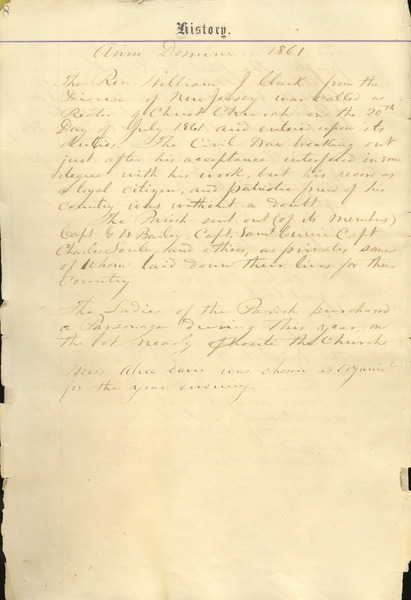 History.
Anno Domini 1861
The Rev William J Clark from the
Diocese of New Jersey was called as
Rector of Christ Church on the 20th
Day of July 1861 and entered upon its
duties. The Civil War breaking out
just after his acceptance interfered in some
degree with his work, but his record as
a loyal citizen, and patriotic friend of his
country was without a doubt.
The Parish sent out (of its members)
Capt G W Bailey, Capt. Saml Currie Capt
Charles Soule and others, as privates some
of whom laid down their lives for their
Country
The Ladies of the Parish purchased
a Parsonage during this year, on
the lot nearly oposite the Church
Miss Alice Davis was chosen as Organist
for the year ensuing.